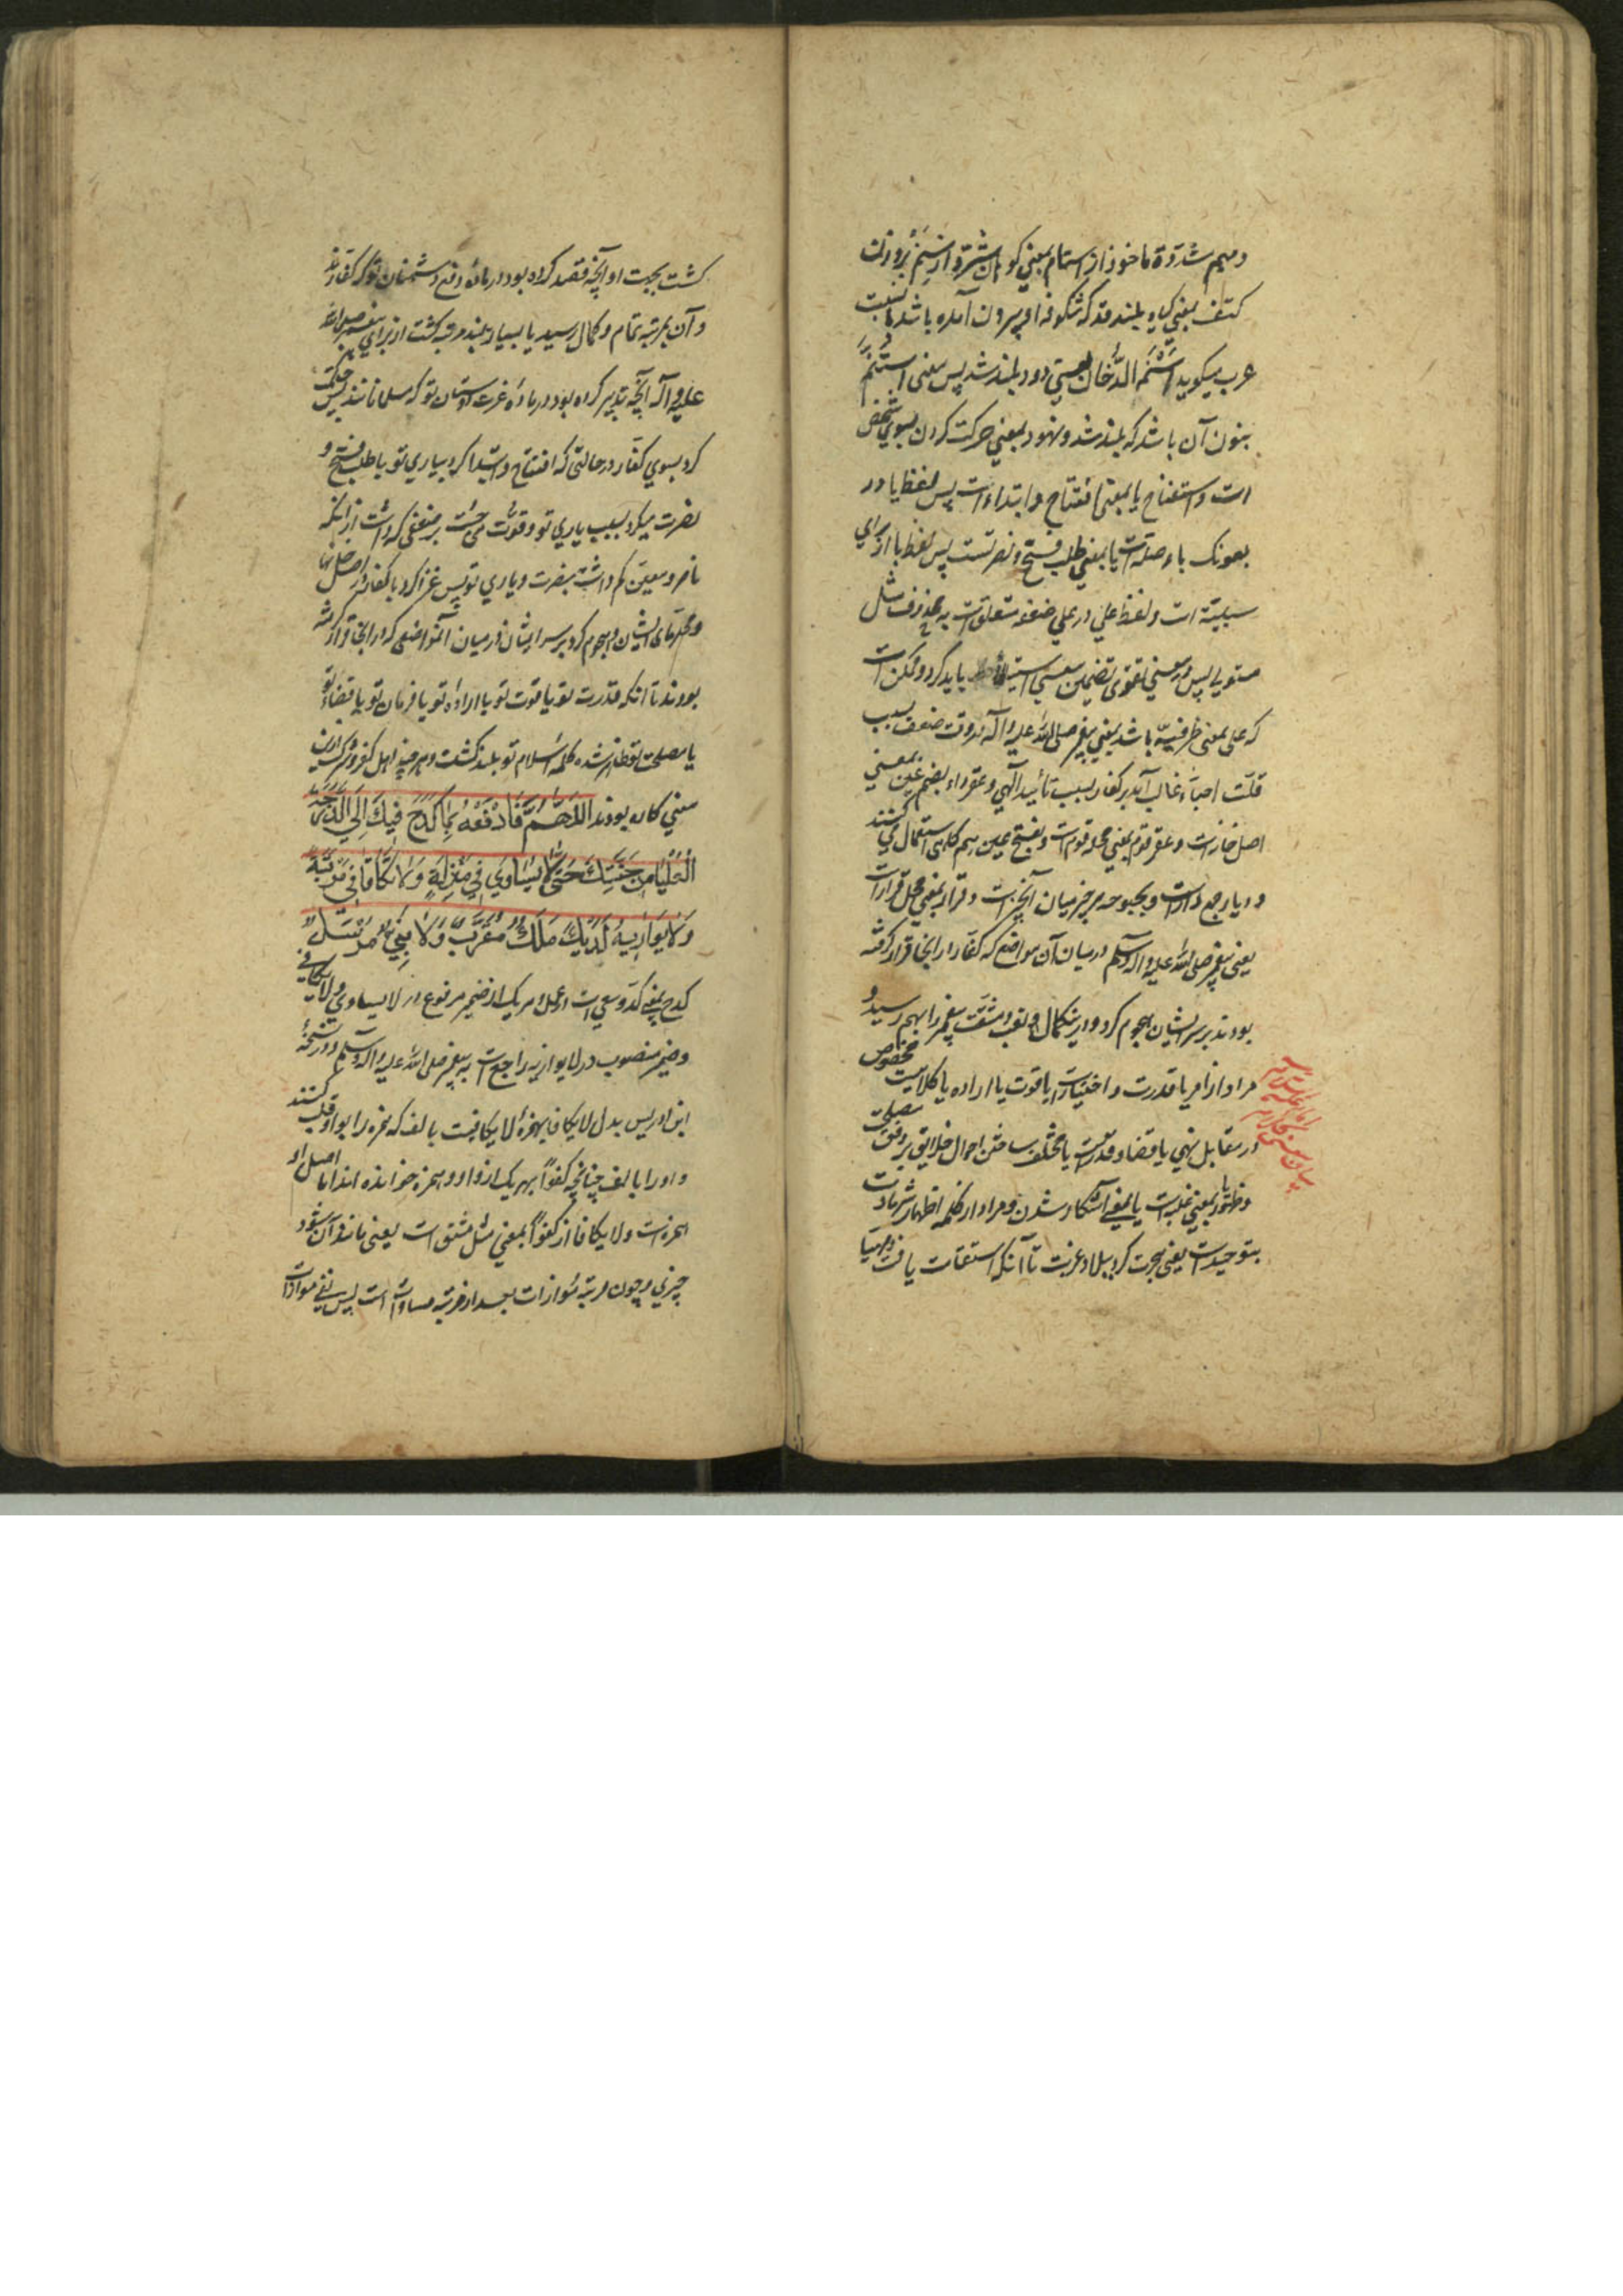 ومیم مشدّدة ماخوذ از استمام بمعنی کوهان شتر و از سنم بروزن
کتف بمعنی گیاه بلند قد که شکوفه او بیرون آمده باشد
عرب میگوید اَسْنَمَ الدُّخان یعنی دود بلند شد پس معنی استنم
بنون آن باشد که بلند شد ونهود بمعنی حرکت کردن بسوی شخص
است و استفتاح یا بمعنی افتتاح و ابتداء است پس لفظ با در
بعونک باء صله است یا بمعنی طلب فتح و نصرتست پس لفظ با از برای
سببیّة است ولفظ علی در علی ضعفه متعلق است به محذوف مثل
مستولی پس در معنی تقوی تضمین معنی استیلا باید کرد و ممکن است
که علی بمعنی ظرفیّه باشد یعنی پیغمبر صلی الله علیه وآله در وقت ضعف بسبب
قلّت احبّاء غالب آمد بر کفار بسبب تأیید الهی وعقر داء بضم عین بمعنی
اصل خانه است وعقر قوم بمعنی محله قوم است وبفتح عین هم گاهی استعمال می کنند
ودیار جمع دار است وبحبوحه هر چیز میان آنچیز است وقرار بمعنی محل قرار است
یعنی پیغمبر صلی الله علیه وآله وسلم در میان آن مواضع که کفار در اینجا قرار گرفته
بودند بر سر ایشان هجوم کرد و
مراد از امر یا قدرت و اختیار است یا قوت یا اراده یا کلامیست مخصوص
در مقابل نهی یا قضا وقدرست یا مختلف ساختن احوال خلایق بر وفق مصلحت
وظهور یا بمعنی غلبه است یا بمعنی آشکار شدن ومراد از کلمه اظهار شهادت
بتوحید است یعنی هجرت کرد ببلاد غربت تا آنکه استقامت یافت ومهیّا
گشت بجهت او آنچه قصد کرده بود در ماده دفع دشمنان تو که کفارند
و آن بمرتبه تمام و کمال رسید یا بسیار بلند مرتبه گشت از برای پیغمبر صلی الله
علیه وآله آنچه تدبیر کرده بود در ماده عزت دوستان تو که مسلمانانند پس حرکت
کرد بسوی کفار در حالتی که افتتاح و ابتدا کرد بیاری تو یا طلب فتح و
نصرت میکرد بسبب یاری تو وقوّت می جست بر ضعفی که داشت از آنکه
ناصر ومعین کم داشت بنصرت ویاری تو پس غزا کرد با کفار در اصل خانها
ومحلّهای ایشان وهجوم کرد بر سر ایشان در میان آنمواضعی که در اینجا قرار گرفته
بودند تا آنکه قدرت تو یا قوت تو یا اراده تو یا فرمان تو یا قضاء تو
یا مصلحت تو ظاهر شد و کلمه اسلام تو بلند گشت و هر چند اهل کفر و شرک از این
معنی کاره بودند اَللّٰهُمَّ فَارْفَعْهُ بِمَا كَدَحَ فِيكَ اِلَى الدَّرَجَةِ
الْعُلْيَا مِنْ جَنَّتِكَ حَتَّى لَا يُسَاوَى فِي مَنْزِلَةٍ وَلَا يُكَافَأَ فِي مَرْتَبَةٍ
وَلَا يُوَازِيَهُ لَدَيْكَ مَلَكٌ مُقَرَّبٌ وَلَا نَبِيٌّ مُرْسَلٌ
کدح بمعنی کدّ وسعی است و عمل و هر یک از ضمیر مرفوع در لا یساوی ولا یکافی
وضمیر منصوب در لا یوازیه راجع است به پیغمبر صلی الله علیه وآله وسلم ودر نسخهٔ
ابن ادریس بدل لا یکافا بهمزه لا یکافیست بالف که همزه را بواو قلب کنند
و او را بالف چنانچه کفواً بهر یک از واو و همزه خوانده اند اما اصل او
همزه است ولا یکافا از کفواً بمعنی مثل مشتق است یعنی مانند آن نشود
چیزی وچون مرتبه موازات بعد از مرتبه مساوات است پس نفی موازات